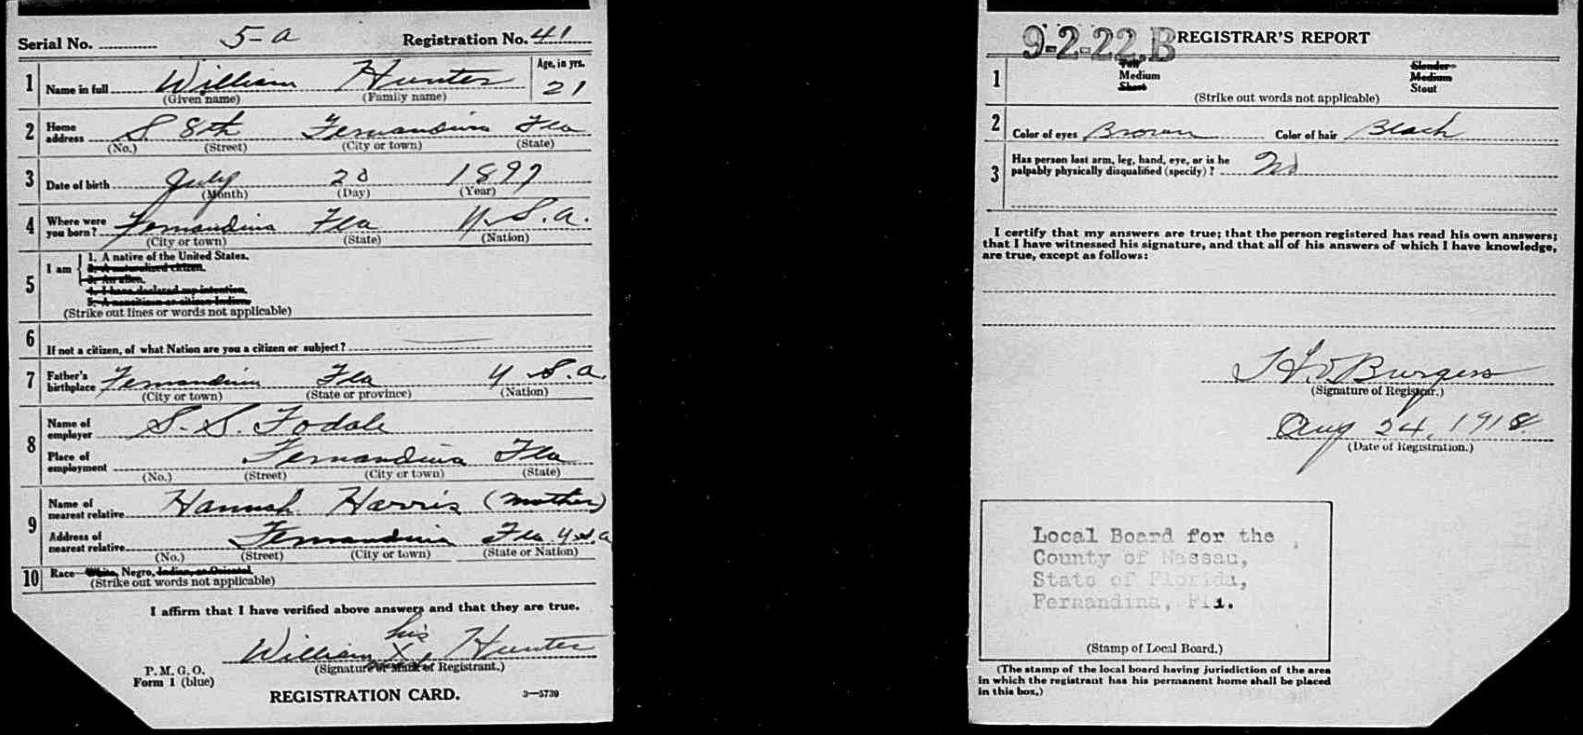 Serial No. 5-a Registration No. 41
1 Name in full William Hunter Age, in yrs. 21
(Given name) (Family name)
2 Home address S 8th Fernandina Fla
(No.) (Street) (City or town) (State)
3 Date of birth July 20 1897
(Month) (Day) (Year)
4 Where were you born? Fernandina Fla U.S.a.
(City or town) (State) (Nation)
5 I am
1. A native of the United States.
2. A naturalized citizen.
3. An alien.
4. I have declared my intention.
5. A noncitizen or citizen Indian.
(Strike out lines or words not applicable)
6 If not a citizen, of what Nation are you a citizen or subject?
7 Father's birthplace Fernandina Fla U.S.a.
(City or town) (State or province) (Nation)
8 Name of employer S. S.
Place of employment Fernandina Fla
(No.) (Street) (City or town) (State)
9 Name of nearest relative Hannah Harris (mother)
Address of nearest relative Fernandina Fla U.S.a
(No.) (Street) (City or town) (State or Nation)
10 Race—White, Negro, Indian, or Oriental
(Strike out words not applicable)
I affirm that I have verified above answers and that they are true.
his
William X Hunter
(Signature or Mark of Registrant.)
P. M. G. O.
Form 1 (blue)
REGISTRATION CARD. 3—5739
9-2-22.B REGISTRAR'S REPORT
1 Tall Slender
Medium Medium
Short Stout
(Strike out words not applicable)
2 Color of eyes Brown Color of hair Black
3 Has person lost arm, leg, hand, eye, or is he
palpably physically disqualified (specify)? No
I certify that my answers are true; that the person registered has read his own answers;
that I have witnessed his signature, and that all of his answers of which I have knowledge,
are true, except as follows:
Burgess
(Signature of Registrar.)
Aug 24, 1918
(Date of Registration.)
Local Board for the
County of Nassau,
State of Florida,
Fernandina, Fla.
(Stamp of Local Board.)
(The stamp of the local board having jurisdiction of the area
in which the registrant has his permanent home shall be placed
in this box.)